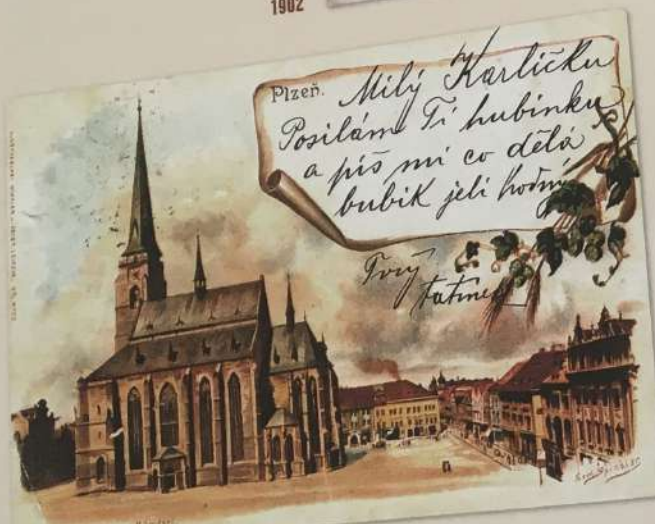 1902
Plzeň.
Milý Karlíčku
Posílám Ti hubinku
a piš mi co dělá
bubik jeli hodný
Tvůj
tatínek